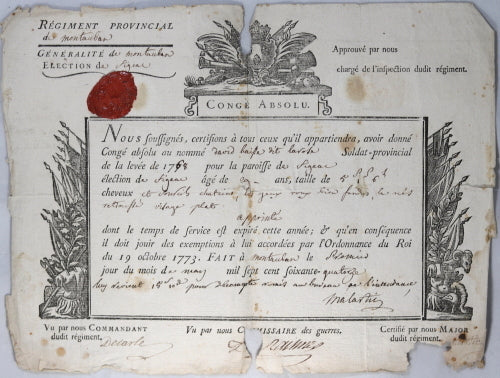 RÉGIMENT PROVINCIAL
de montauban
GÉNÉRALITÉ de montauban
ELECTION de figeac
Approuvé par nous
chargé de l'inspection dudit régiment.
CONGÉ ABSOLU.
NOUS soussignés, certifions à tous ceux qu'il appartiendra, avoir donné
Congé absolu au nommé david dit Soldat-provincial
de la levée de 1768 pour la paroisse de figeac
élection de figeac âgé de ans, taille de 5
cheveux et sourcils chatains, les yeux
visage plat
dont le temps de service est expiré cette année; & qu'en conséquence
il doit jouir des exemptions à lui accordées par l'Ordonnance du Roi
du 19 octobre 1773. FAIT à montauban le premier
jour du mois de mars mil sept cent soixante-quatorze
pour decompte au bureau de l'intendance
Malartic
Vu par nous COMMANDANT
dudit régiment.
Vu par nous COMMISSAIRE des guerres.
Certifié par nous MAJOR
dudit régiment.